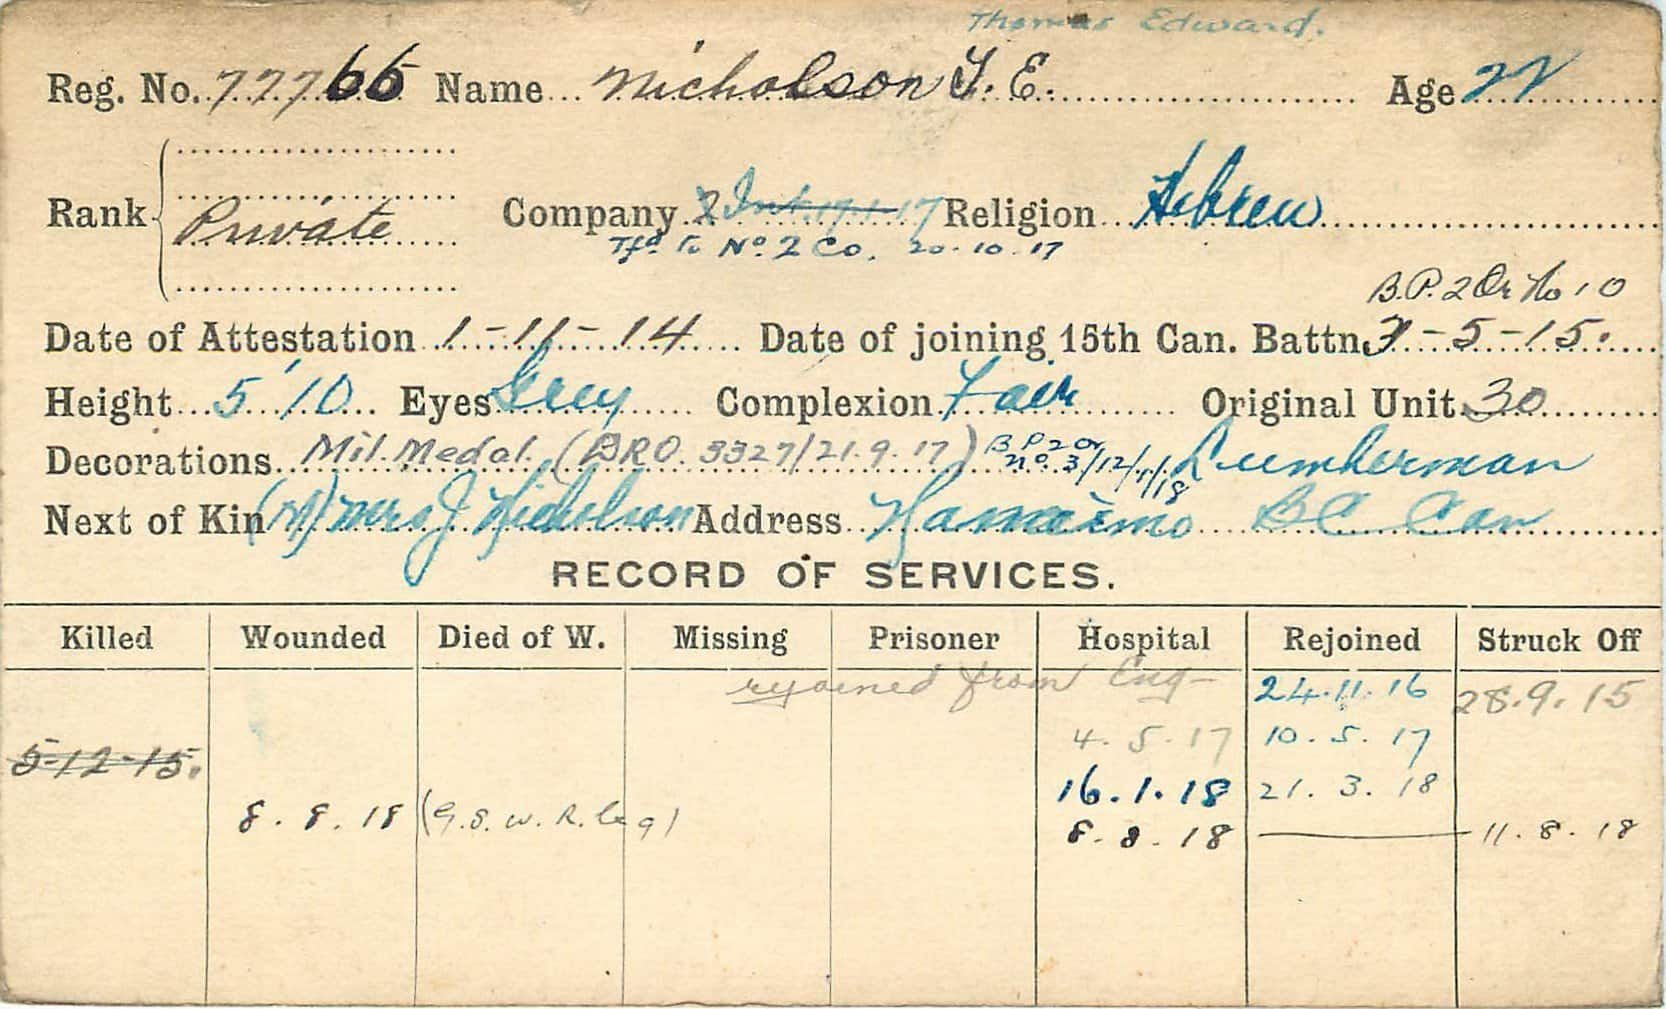 Thomas Edward.
Reg. No. 77766 Name Nicholson T. E. Age 22
Rank Private Company 2 Int. 17.1.17 Religion Hebrew
Tfd. To No. 2 Co. 20.10.17
B.P. 2 Or No 10
Date of Attestation 1-11-14 Date of joining 15th Can. Battn. 7-5-15.
Height 5'10 Eyes Grey Complexion Fair Original Unit 30
Decorations Mil. Medal. (BRO. 3327/21.9.17) B.P. 2 Or No. 3/12/1/18 Lumberman
Next of Kin (M) Mrs J Nicholson Address Nanaimo BC Can
RECORD OF SERVICES.
Killed Wounded Died of W. Missing Prisoner Hospital Rejoined Struck Off
rejoined from Eng- 24.11.16 28.9.15
4.5.17 10.5.17
5-12-15.
16.1.18 21.3.18
8.8.18 (G.S.W. R. Leg)
8.8.18 11.8.18